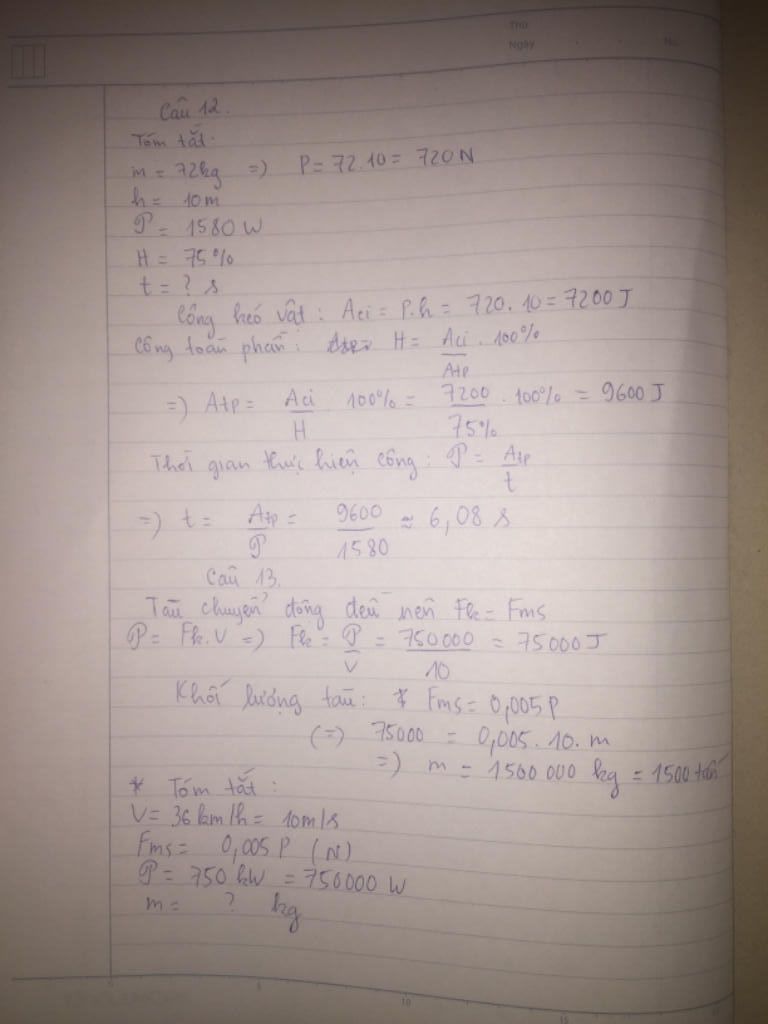 Thứ
Ngày . . No.
Câu 12.
Tóm tắt:
m = 72kg => P = 72.10 = 720N
h = 10m
P = 1580 W
H = 75%
t = ? s
Công kéo vật: Aci = P.h = 720.10 = 7200J
Công toàn phần: H = Aci/Atp . 100%
=) Atp = Aci/H 100% = 7200/75% . 100% = 9600 J
Thời gian thực hiện công: P = Atp/t
=) t = Atp/P = 9600/1580 ≈ 6,08 s
Câu 13.
Tàu chuyển động đều nên Fk = Fms
P = Fk.V =) Fk = P/V = 750000/10 = 75000J
Khối lượng tàu: * Fms = 0,005P
(=) 75000 = 0,005.10.m
=) m = 1500 000 kg = 1500 tấn
* Tóm tắt:
V = 36 km/h = 10m/s
Fms = 0,005 P (N)
P = 750 kW = 750000 W
m = ? kg
5
10
15